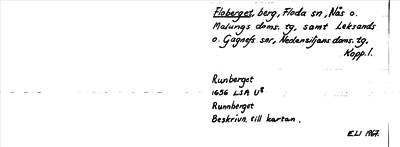 Floberget, berg, Floda sn, Nås o.
Malungs doms. tg, samt Leksands
o. Gagnefs snr, Nedansiljans doms. tg,
Kopp. l.
Runberget
1656 LSA U8
Runnberget
Beskrivn. till kartan.
ELI 1967.